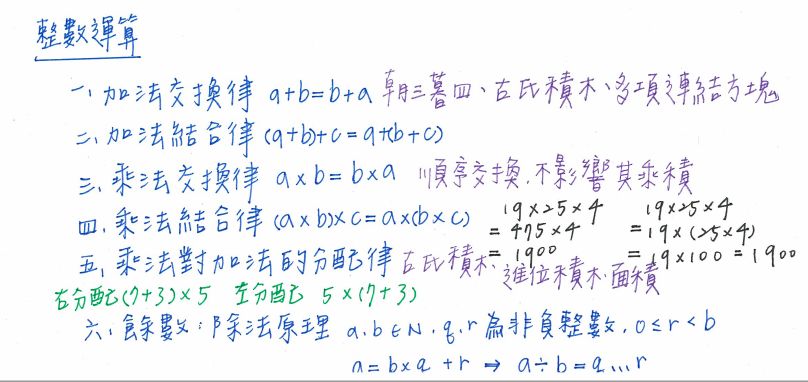 整數運算
一、加法交換律 a+b=b+a 朝三暮四、古氏積木、多項連結方塊
二、加法結合律 (a+b)+c=a+(b+c)
三、乘法交換律 a×b=b×a 順序交換,不影響其乘積
四、乘法結合律 (a×b)×c=a×(b×c)
19×25×4
=475×4
=1900
19×25×4
=19×(25×4)
=19×100=1900
五、乘法對加法的分配律 古氏積木、進位積木、面積
右分配 (7+3)×5 左分配 5×(7+3)
六、餘數:除法原理 a,b∈N,q,r為非負整數,0≤r<b
a=b×q+r ⇒ a÷b=q...r